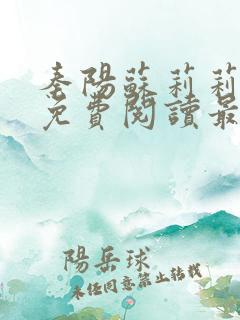 秦陽蘇莉莉
免費閱讀最
陽岳球
未經同意禁止轉載